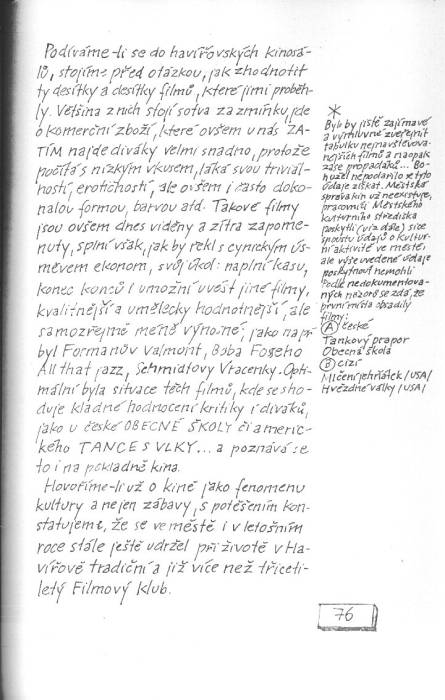 Podíváme-li se do havířovských kinosá-
lů, stojíme před otázkou, jak zhodnotit
ty desítky a desítky filmů, které jimi proběh-
ly. Většina z nich stojí sotva za zmínku, jde
o komerční zboží, které ovšem u nás ZA-
TÍM najde diváky velmi snadno, protože
počítá s nízkým vkusem, láká svou trivial-
ností, erotičností, ale ovšem i často doko-
nalou formou, barvou atd. Takové filmy
jsou ovšem dnes viděny a zítra zapome-
nuty, splní však, jak by řekl s cynickým ús-
měvem ekonom, svůj úkol: naplní kasu,
konec konců i umožní uvést jiné filmy,
kvalitnější a umělecky hodnotnější, ale
samozřejmě méně výnosné, jako např.
byl Formanův Valmont, Boba Foseho
All that jazz, Schmidtovy Vracenky. Opti-
mální byla situace těch filmů, kde se sho-
duje kladné hodnocení kritiky i diváků,
jako u české OBECNÉ ŠKOLY či americ-
kého TANCE S VLKY... a poznává se
to i na pokladně kina.
Hovoříme-li už o kině jako fenomenu
kultury a nejen zábavy, s potěšením kon-
statujeme, že se ve městě i v letošním
roce stále ještě udržel při životě v Ha-
vířově tradiční a již více než třiceti-
letý Filmový klub.
*
Bylo by jistě zajímavé
a výmluvné zveřejnit
tabulku nejnavštěvova-
nějších filmů a naopak
zase propadáků... Bo-
hužel nepodařilo se tyto
údaje získat. Městská
správa kin už neexistuje,
pracovníci Městského
kulturního střediska
poskytli (viz dále) sice
spoustu údajů o kultur-
ní aktivitě ve městě,
ale výše uvedené údaje
poskytnout nemohli
Podle nedokumentova-
ných názorů se zdá, že
první místa obsadily
filmy:
A české
Tankový prapor
Obecná škola
B cizí
Mlčení jehňátek /USA/
Hvězdné války /USA/
76